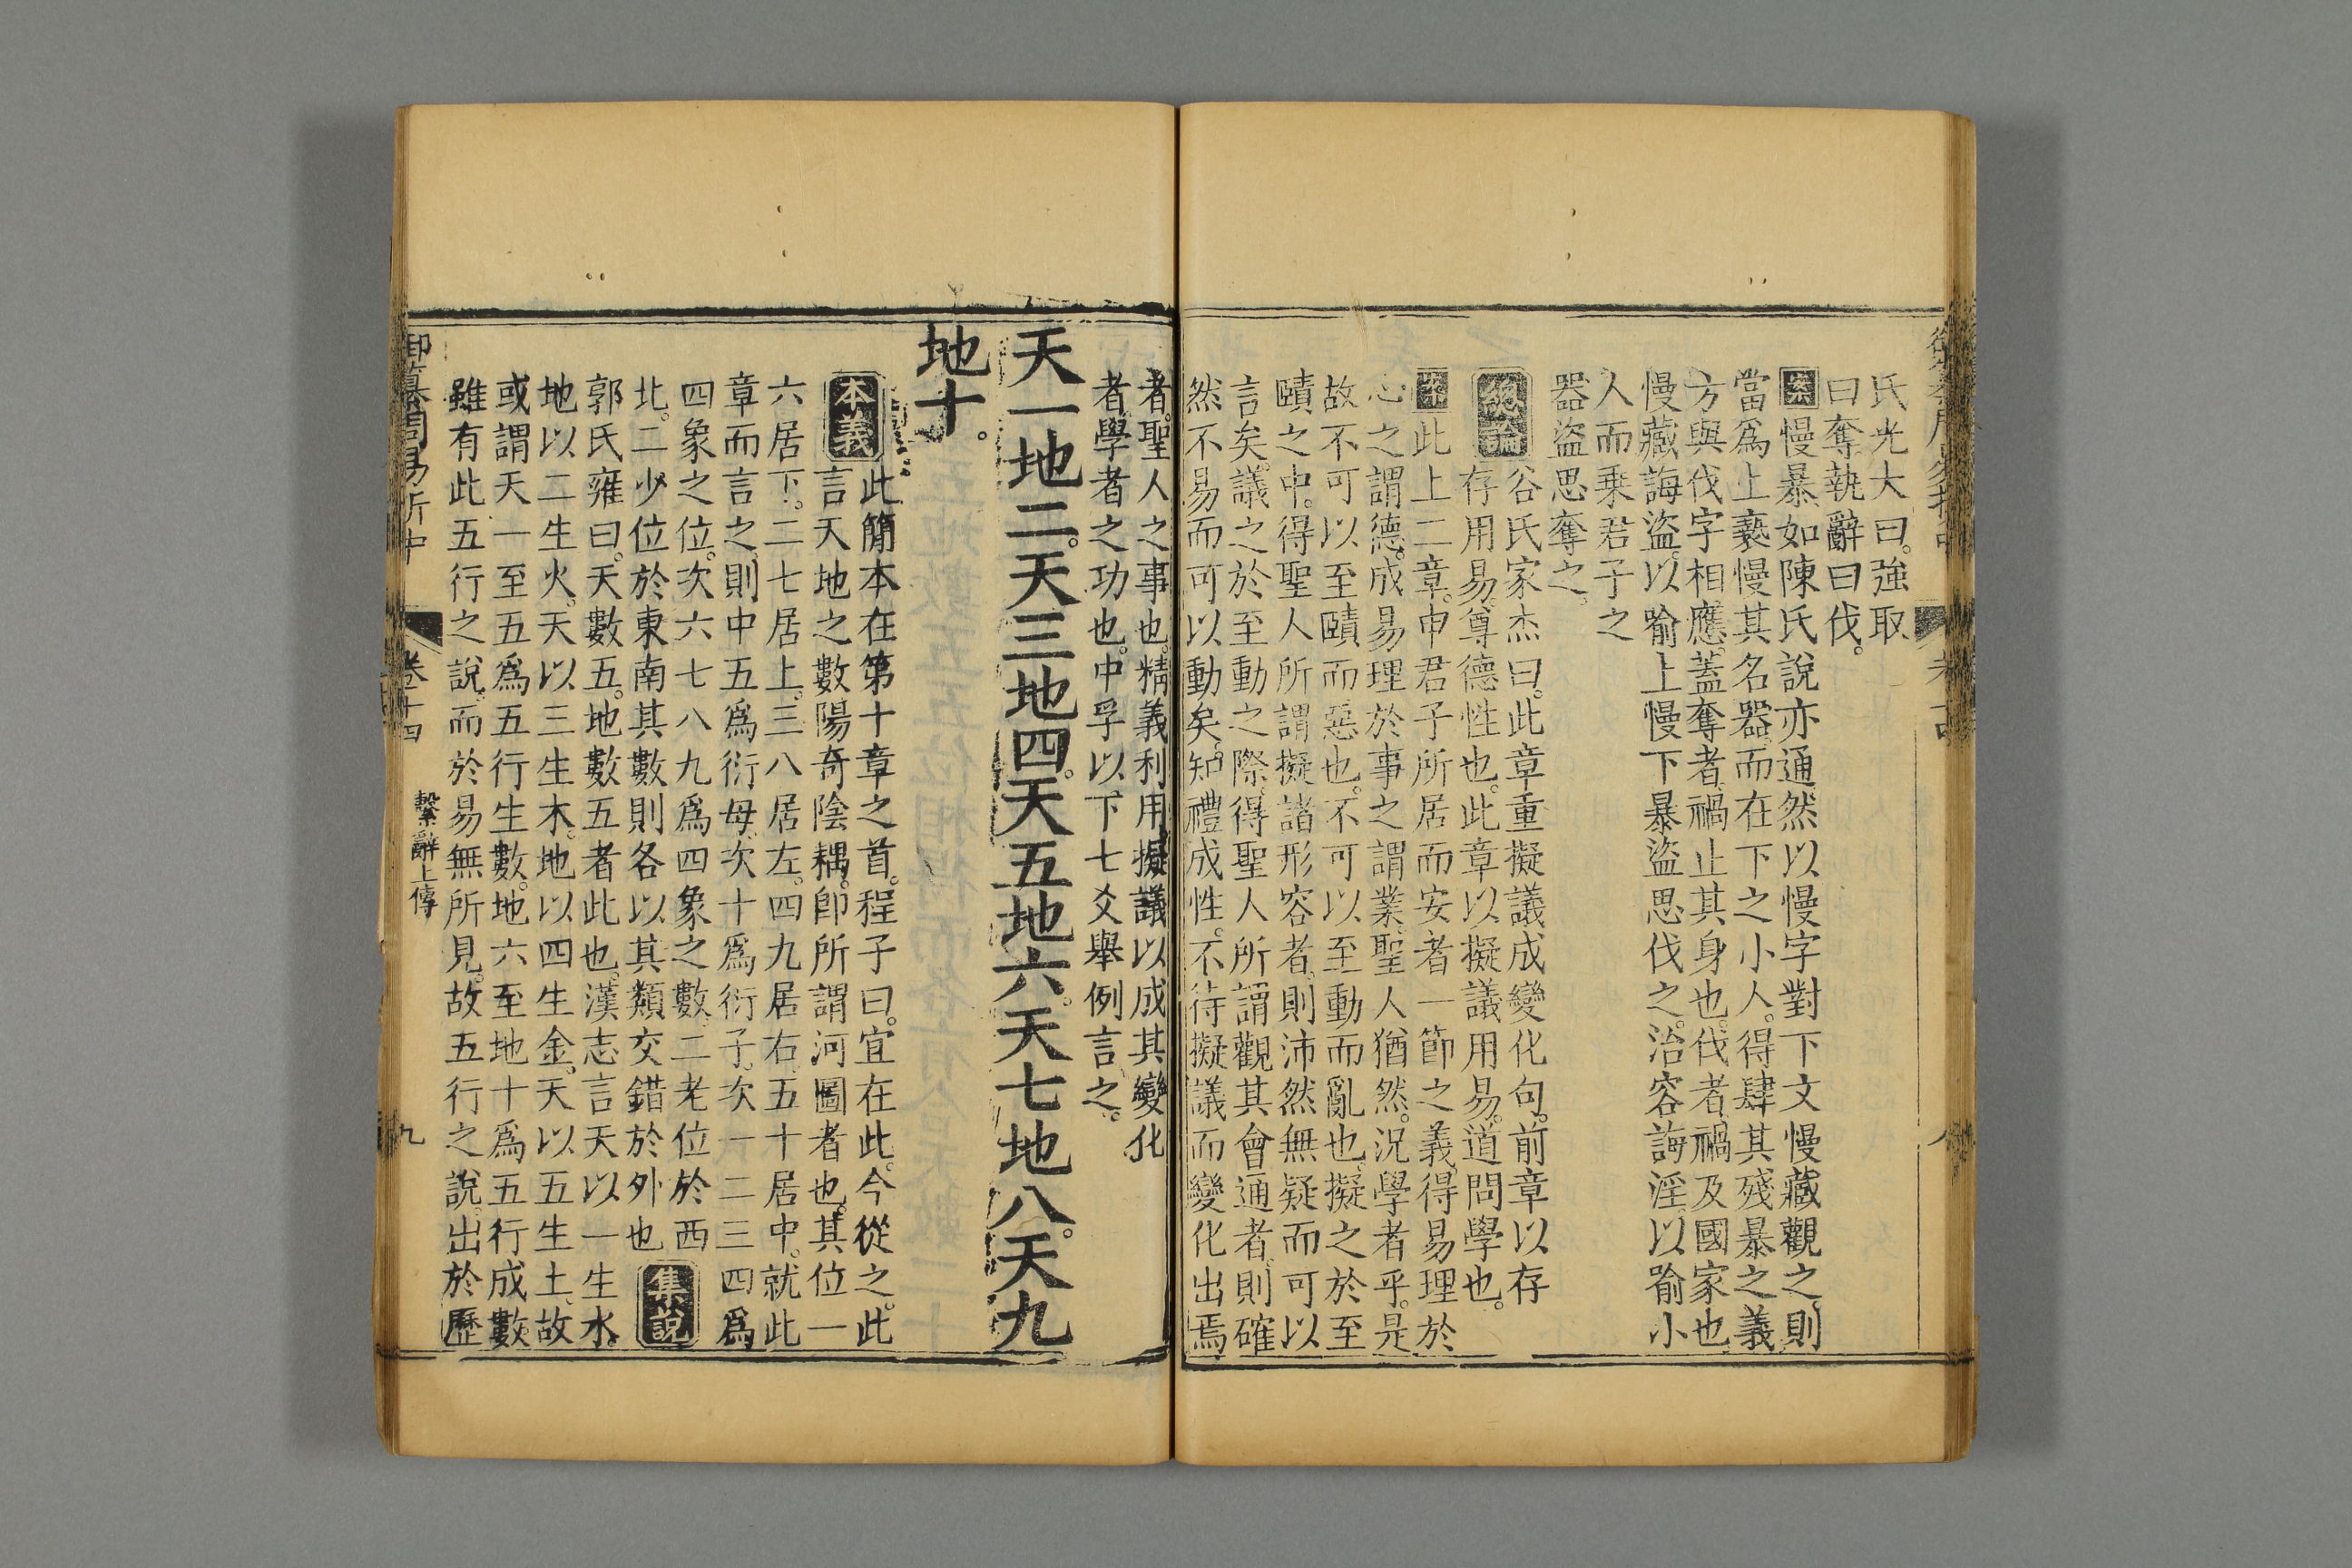 氏光大曰。強取
曰奪執辭曰伐。
案慢暴如陳氏說亦通然以慢字對下文慢藏觀之則
當爲上褻慢其名器而在下之小人。得肆其殘暴之義
方與伐字相應。蓋奪者禍止其身也。伐者禍及國家也
慢藏誨盜。以喻上慢下暴盜思伐之。冶容誨淫。以喻小
人而乗君子之
器盜思奪之。
總論谷氏家杰曰。此章重擬議成變化句。前章以存
存用易。尊德性也。此章以擬議用易。道問學也。
案此上二章。申君子所居而安者一節之義。得易理於
心之謂德。成易理於事之謂業。聖人猶然。況學者乎。是
故不可以至賾而惡也。不可以至動而亂也。擬之於至
賾之中。得聖人所謂擬諸形容者。則沛然無疑而可以
言矣。議之於至動之際。得聖人所謂觀其會通者。則確
然不易而可以動矣。知禮成性。不待擬議而變化出焉
者。聖人之事也。精義利用擬議以成其變化
者。學者之功也。中孚以下七爻舉例言之。
天一地二。天三地四。天五地六。天七地八。天九
地十。
本義此簡本在第十章之首。程子曰。宜在此。今從之。此
言天地之數陽奇陰耦。卽所謂河圖者也。其位一
六居下。二七居上。三八居左。四九居右。五十居中。就此
章而言之。則中五爲衍母。次十爲衍子。次一二三四爲
四象之位。次六七八九爲四象之數。二老位於西
北。二少位於東南其數則各以其類交錯於外也集說
郭氏雍曰。天數五。地數五者此也。漢志言天以一生水。
地以二生火。天以三生木。地以四生金。天以五生土。故
或謂天一至五爲五行生數。地六至地十爲五行成數。
雖有此五行之說。而於易無所見。故五行之說。出於歷
御纂周易折中
卷十四
繫辭上傳
九